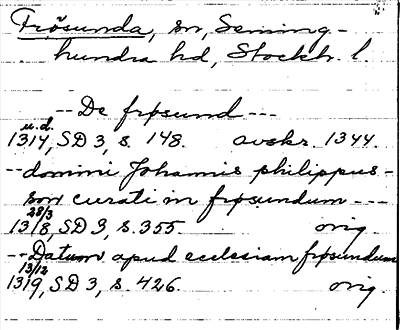 Frösunda, sn, Seming-
hundra hd, Stockh. l.
-- De frøsund ---
u.d.
1314, SD 3, s. 148. avskr. 1344.
-- domini Johannis philippus-
son curati in frøsundum ---
28/3
1318, SD 3, s. 355. orig.
-- Datum apud ecclesiam frøsundum
13/12
1319, SD 3, s. 426. orig.